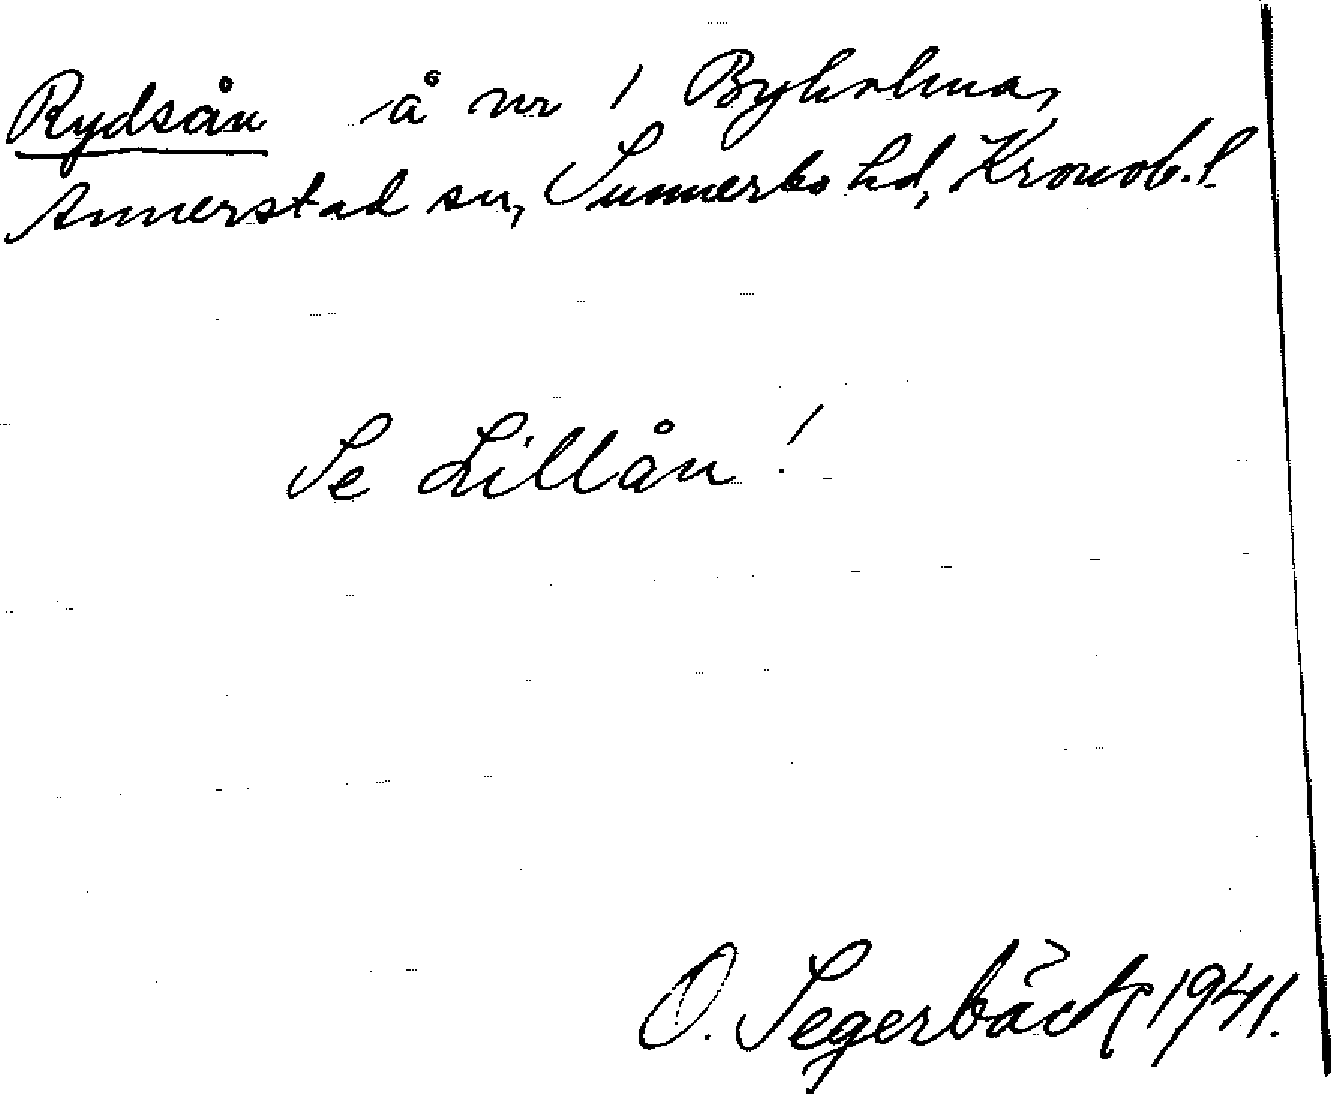 Rydsån å nr 1 Byholma,
Annerstad sn, Sunnerbo hd, Kronob. l.
Se Lillån!
O. Segerbäck 1941.